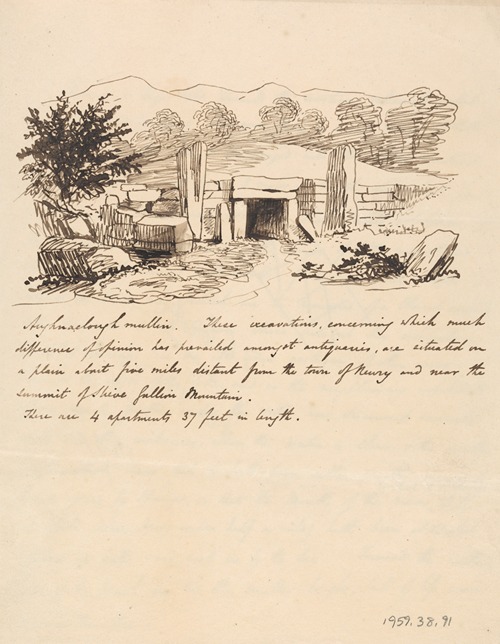 Aughnaclough mullin. These excavations, concerning which much
difference of opinion has prevailed amongst antiquaries, are situated on
a plain about five miles distant from the town of Newry and near the
summit of Slieve Gullion Mountain.
There are 4 apartments 37 feet in length.
1959.38.91